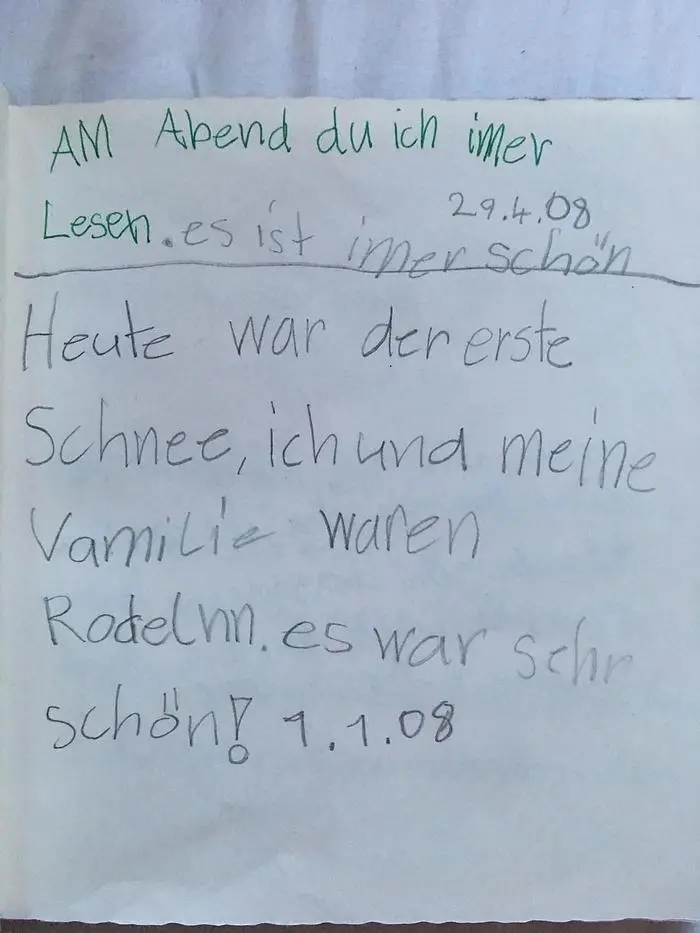 AM Abend du ich imer
29.4.08
Lesen. es ist imer schön
Heute war der erste
Schnee, ich und meine
Vamilie waren
Rodelnn. es war sehr
schön! 1.1.08